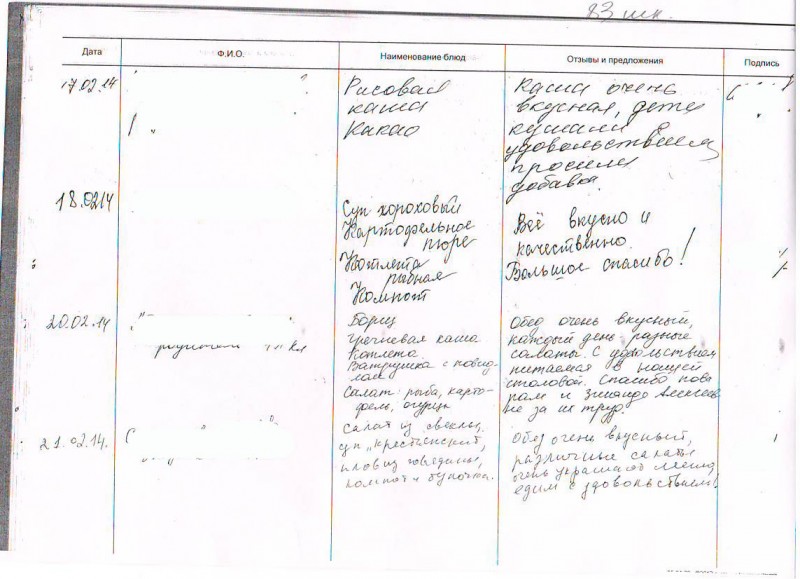 83 шк.
Дата Ф.И.О. Наименование блюд Отзывы и предложения Подпись
17.02.14 Рисовая Каша очень
каша вкусная, дети
Какао кушали с
удовольствием,
просили
добавки.
18.0214
Суп гороховый Всё вкусно и
Картофельное качественно.
пюре Большое спасибо!
Котлета
рыбная
Компот
20.02.14 Борщ Обед очень вкусный,
Гречневая каша каждый день разные
Котлета салаты. С удовольствием
Ватрушка с повид- питаемся в нашей
лом столовой. Спасибо пова
Салат: рыба, карто- рам и Алексеев
фель, огурцы не за их труд.
Салат из свеклы,
21.02.14. суп "крестьянский", Обед очень вкусный,
плов из говядины, различные салаты
компот и булочка. очень украшают меню,
едим с удовольствием!